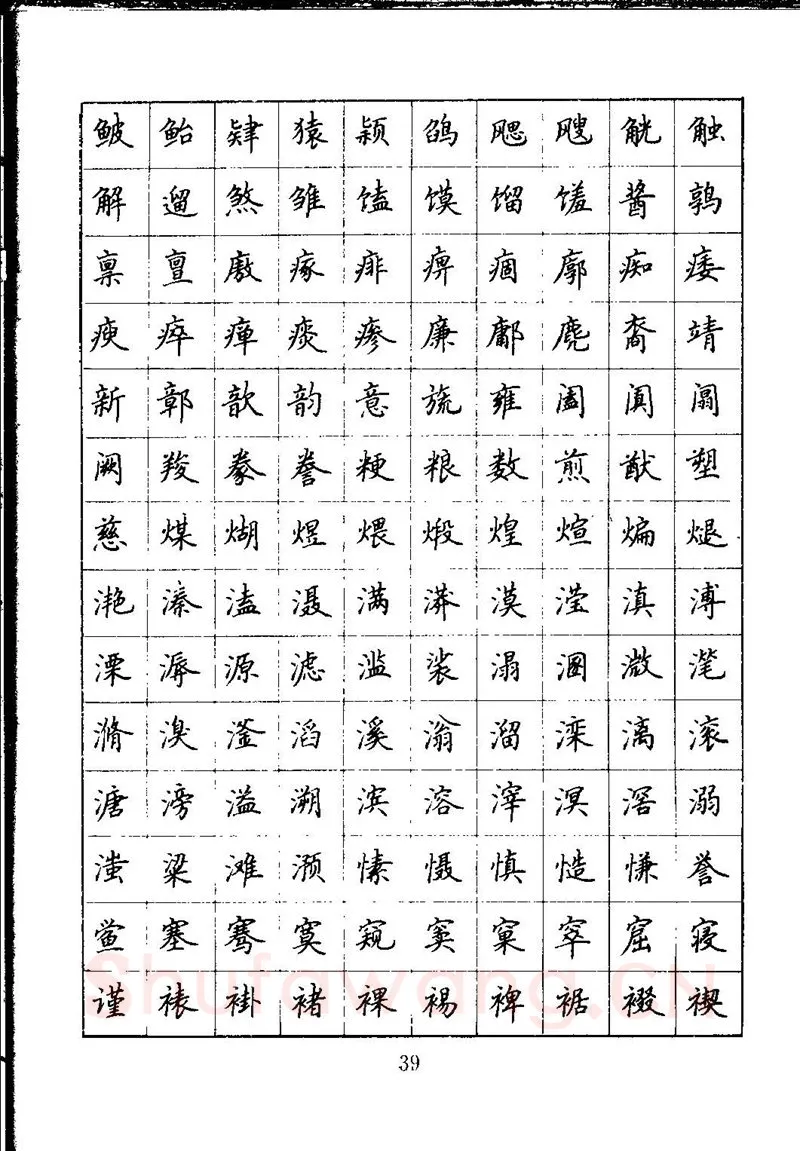 鲏鲐肄猿颖鹐飔飕觥触
解遛煞雏馌馍馏馐酱鹑
禀亶廒瘃痱痹痼廓痴痿
瘐瘁瘅痰瘆廉鄘麂裔靖
新鄣歆韵意旒雍阖阗阘
阙羧豢誊粳粮数煎猷塑
慈煤煳煜煨煅煌煊煸煺
滟溱溘滠满漭漠滢滇溥
溧溽源滤滥裟溻溷溦滗
滫溴滏滔溪滃溜滦漓滚
溏滂溢溯滨溶滓溟滘溺
滍粱滩滪愫慑慎慥慊誉
鲎塞骞寞窥窦窠窣窟寝
谨裱褂褚裸裼裨裾裰禊
39
Shufawang.CN